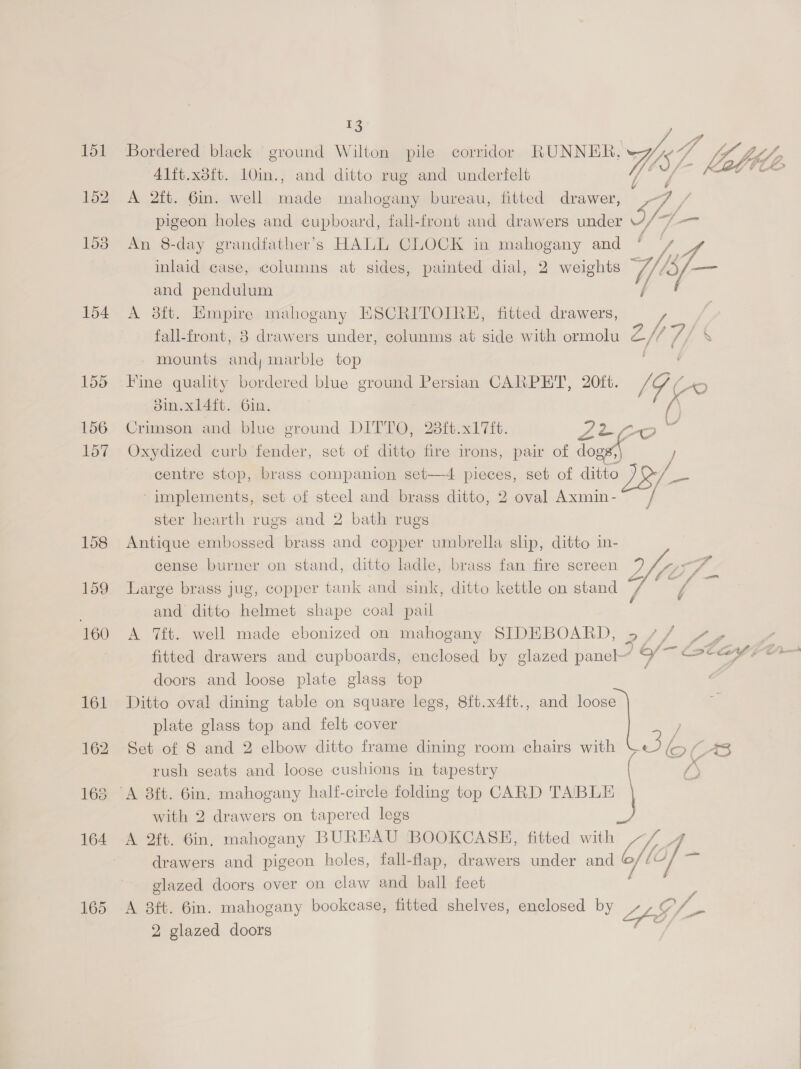 13
151 Bordered black ground Wilton pile corridor RUNNER,
41ft.x3ft. 10in., and ditto rug and underfelt
152 A 2ft. 6in. well made mahogany bureau, fitted drawer,
pigeon holes and cupboard, fall-front and drawers under
153 An 8-day grandfather's HALL CLOCK in mahogany and
inlaid case, columns at sides, painted dial, 2 weights
and pendulum
154 A 3ft. Empire mahogany ESCRITOIRE, fitted drawers,
fall-front, 3 drawers under, colunms at side with ormolu
mounts and marble top
155 Fine quality bordered blue ground Persian CARPET, 20ft.
3in.x14ft. 6in.
156 Crimson and blue ground DITTO, 23ft.x17ft.
157 Oxydized curb fender, set of ditto fire irons, pair of dogs,
centre stop, brass companion set—4 pieces, set of ditto
implements, set of steel and brass ditto, 2 oval Axmin-
ster hearth rugs and 2 bath rugs
158 Antique embossed brass and copper umbrella slip, ditto in-
cense burner on stand, ditto ladle, brass fan fire screen
159 Large brass jug, copper tank and sink, ditto kettle on stand
and ditto helmet shape coal pail
160 A 7ft. well made ebonized on mahogany SIDEBOARD,
fitted drawers and cupboards, enclosed by glazed panel
doors and loose plate glass top
161 Ditto oval dining table on square legs, 8ft.x4ft., and loose
plate glass top and felt cover
162 Set of 8 and 2 elbow ditto frame dining room chairs with
rush seats and loose cushions in tapestry
163 A 3ft. 6in. mahogany half-circle folding top CARD TABLE
with 2 drawers on tapered legs
164 A 2ft. 6in. mahogany BUREAU BOOKCASE, fitted with
drawers and pigeon holes, fall-flap, drawers under and
glazed doors over on claw and ball feet
165 A 3ft. 6in. mahogany bookcase, fitted shelves, enclosed by
2 glazed doors